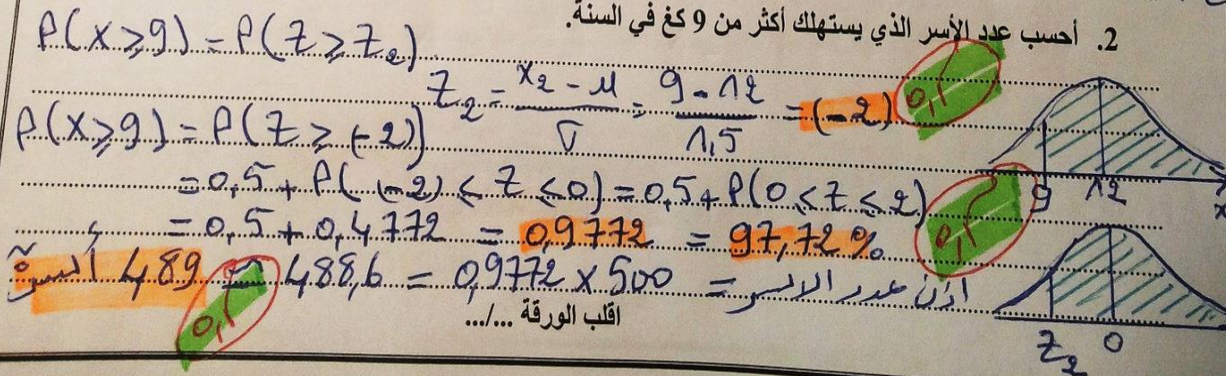 2. أحسب عدد الأسر الذي يستهلك أكثر من 9 كغ في السنة.
P(X≥9) = P(Z≥Z₂)
Z₂ = (x₂ - μ)/σ = (9 - 12)/1,5 = (-2)
P(X≥9) = P(Z≥(-2))
= 0,5 + P((-2) ≤ Z ≤ 0) = 0,5 + P(0 ≤ Z ≤ 2)
= 0,5 + 0,4772 = 0,9772 = 97,72%
اذن عدد الاسر = 500 × 0,9772 = 488,6 ≈ 489 أسرة
اقلب الورقة .../...
9 12
Z₂ 0